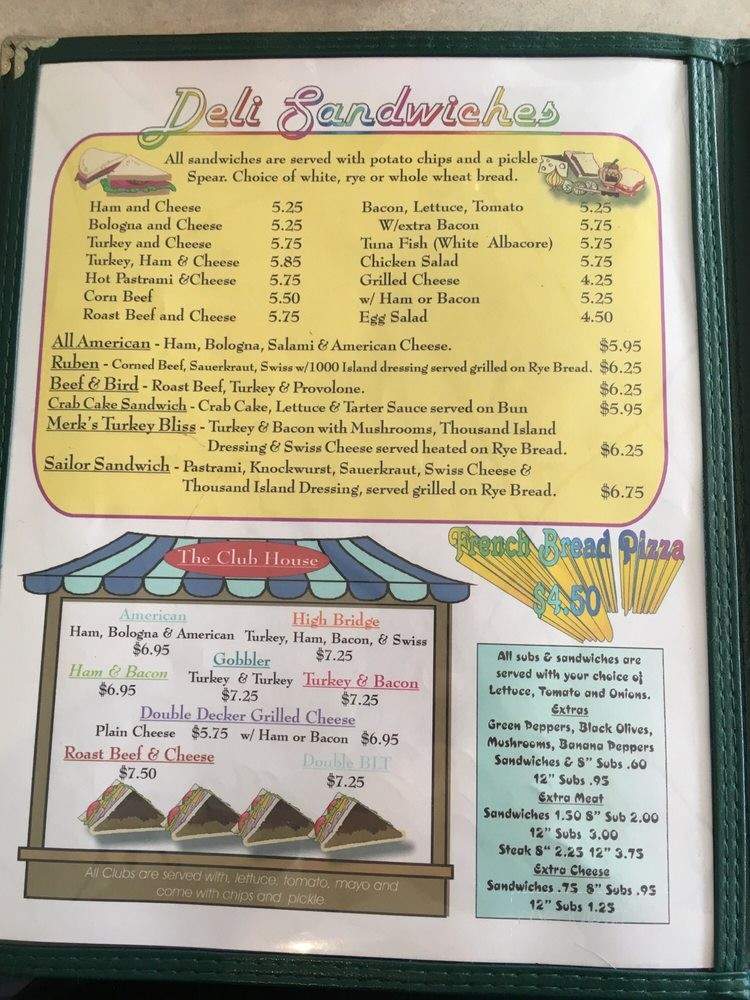 Deli Sandwiches
All sandwiches are served with potato chips and a pickle
Spear. Choice of white, rye or whole wheat bread.
Ham and Cheese 5.25
Bologna and Cheese 5.25
Turkey and Cheese 5.75
Turkey, Ham & Cheese 5.85
Hot Pastrami &Cheese 5.75
Corn Beef 5.50
Roast Beef and Cheese 5.75
Bacon, Lettuce, Tomato 5.25
W/extra Bacon 5.75
Tuna Fish (White Albacore) 5.75
Chicken Salad 5.75
Grilled Cheese 4.25
w/ Ham or Bacon 5.25
Egg Salad 4.50
All American - Ham, Bologna, Salami & American Cheese. $5.95
Ruben - Corned Beef, Sauerkraut, Swiss w/1000 Island dressing served grilled on Rye Bread. $6.25
Beef & Bird - Roast Beef, Turkey & Provolone. $6.25
Crab Cake Sandwich - Crab Cake, Lettuce & Tarter Sauce served on Bun $5.95
Merk's Turkey Bliss - Turkey & Bacon with Mushrooms, Thousand Island
Dressing & Swiss Cheese served heated on Rye Bread. $6.25
Sailor Sandwich - Pastrami, Knockwurst, Sauerkraut, Swiss Cheese &
Thousand Island Dressing, served grilled on Rye Bread. $6.75
The Club House
American
Ham, Bologna & American
$6.95
High Bridge
Turkey, Ham, Bacon, & Swiss
$7.25
Ham & Bacon
$6.95
Gobbler
Turkey & Turkey
$7.25
Turkey & Bacon
$7.25
Double Decker Grilled Cheese
Plain Cheese $5.75 w/ Ham or Bacon $6.95
Roast Beef & Cheese
$7.50
Double BLT
$7.25
All Clubs are served with, lettuce, tomato, mayo and
come with chips and pickle
French Bread Pizza
$4.50
All subs & sandwiches are
served with your choice of
Lettuce, Tomato and Onions.
Extras
Green Peppers, Black Olives,
Mushrooms, Banana Peppers
Sandwiches & 8" Subs .60
12" Subs .95
Extra Meat
Sandwiches 1.50 8" Sub 2.00
12" Subs 3.00
Steak 8" 2.25 12" 3.75
Extra Cheese
Sandwiches .75 8" Subs .95
12" Subs 1.25